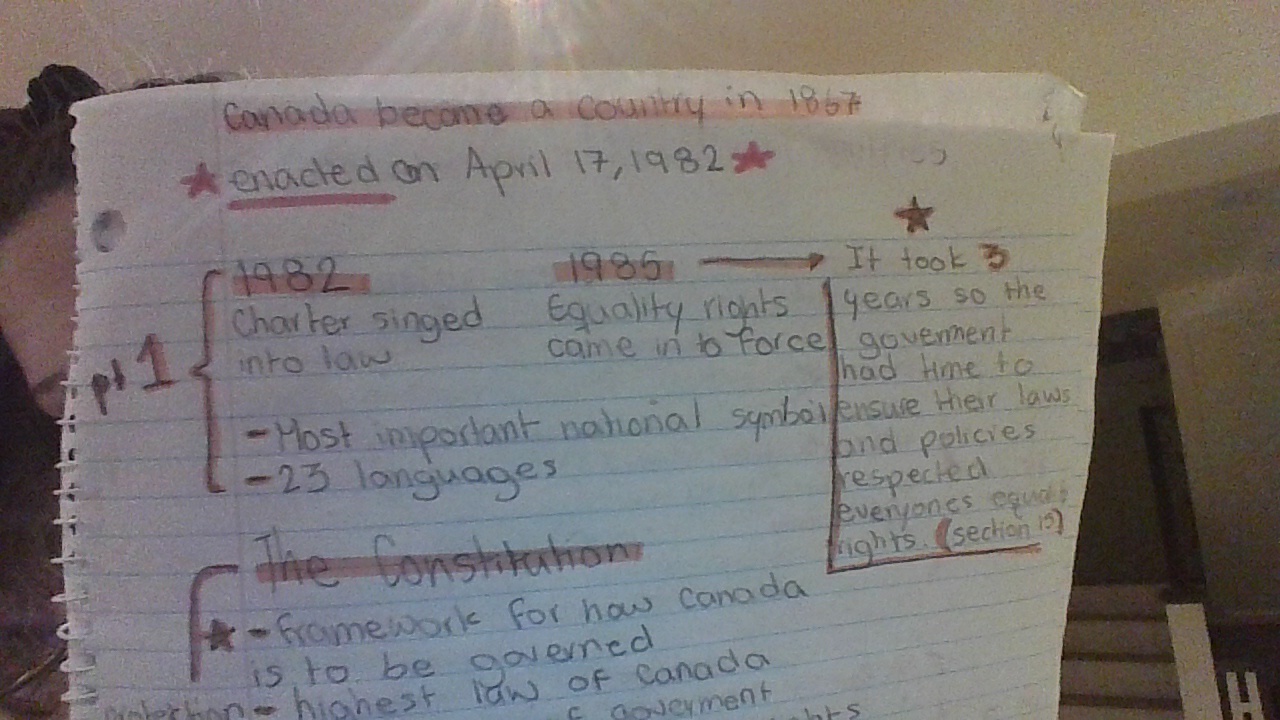 Canada became a country in 1867
enacted on April 17, 1982
1982
Charter singed
into law
1985
Equality rights
came in to force
It took 3
years so the
goverment
had time to
ensure their laws
and policies
respected
everyones equal
rights. (section 15)
pt 1
- Most important national symbol
- 23 languages
The Constitution
- framework for how Canada
is to be governed
- highest law of Canada
goverment